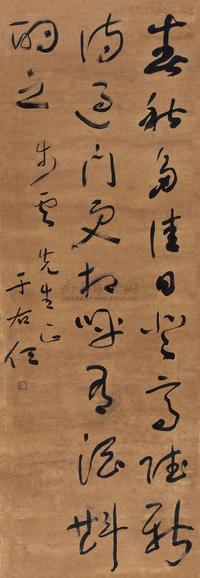 春秋多佳日登高赋新
诗过门更相呼有酒斟
酌之
步云先生正
于右任